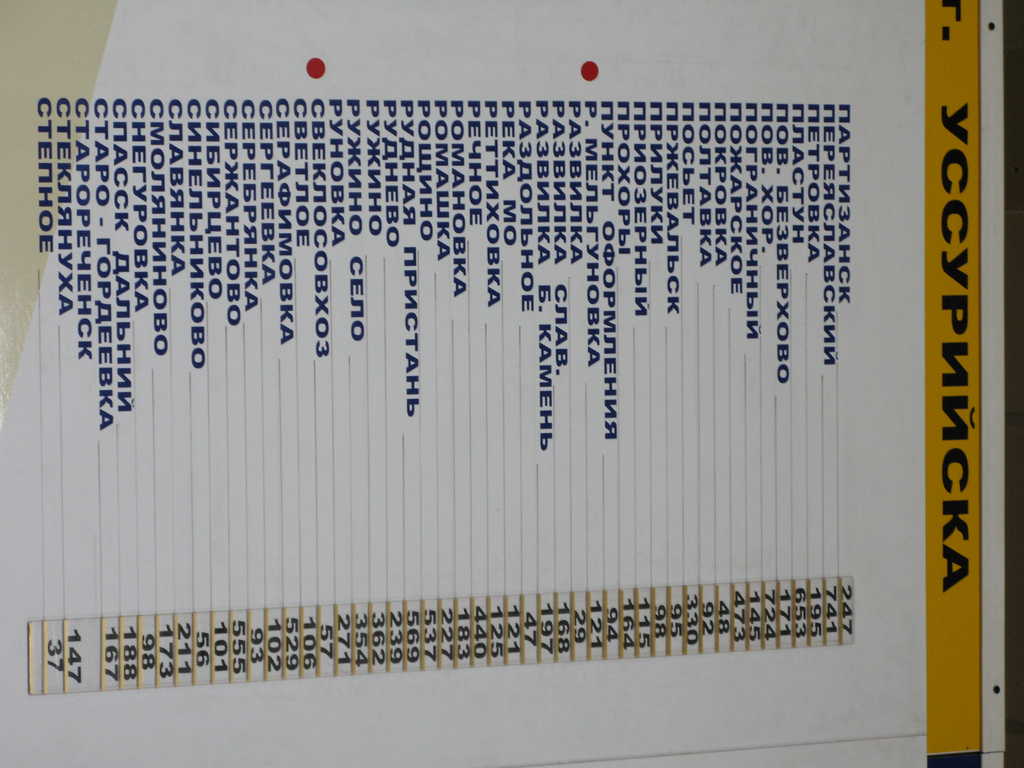 г. УССУРИЙСКА
ПАРТИЗАНСК 247
ПЕРЕЯСЛАВСКИЙ 741
ПЕТРОВКА 195
ПЛАСТУН 653
ПОВ- БЕЗВЕРХОВО 171
ПОВ. ХОР. 724
ПОГРАНИЧНЫЙ 145
ПОЖАРСКОЕ 473
ПОКРОВКА 48
ПОЛТАВКА 92
ПОСЬЕТ 330
ПРЖЕВАЛЬСК 95
ПРИЛУКИ 98
ПРИОЗЕРНЫЙ 115
ПРОХОРЫ 164
ПУНКТ ОФОРМЛЕНИЯ 94
Р. МЕЛЬГУНОВКА 121
РАЗВИЛКА 29
РАЗВИЛКА СЛАВ. 168
РАЗВИЛКА Б. КАМЕНЬ 197
РАЗДОЛЬНОЕ 47
РЕКА МО 121
РЕТТИХОВКА 125
РЕЧНОЕ 440
РОМАНОВКА 183
РОМАШКА 227
РОЩИНО 537
РУДНАЯ ПРИСТАНЬ 569
РУДНЕВО 239
РУЖИНО 362
РУЖИНО СЕЛО 354
РУНОВКА 271
СВЕКЛОСОВХОЗ 57
СВЕТЛОЕ 106
СЕРАФИМОВКА 529
СЕРГЕЕВКА 102
СЕРЕБРЯНКА 93
СЕРЖАНТОВО 555
СИБИРЦЕВО 101
СИНЕЛЬНИКОВО 56
СЛАВЯНКА 211
СМОЛЯНИНОВО 173
СНЕГУРОВКА 98
СПАССК ДАЛЬНИЙ 188
СТАРО - ГОРДЕЕВКА 167
СТАРОРЕЧЕНСК
СТЕКЛЯНУХА 147
СТЕПНОЕ 37